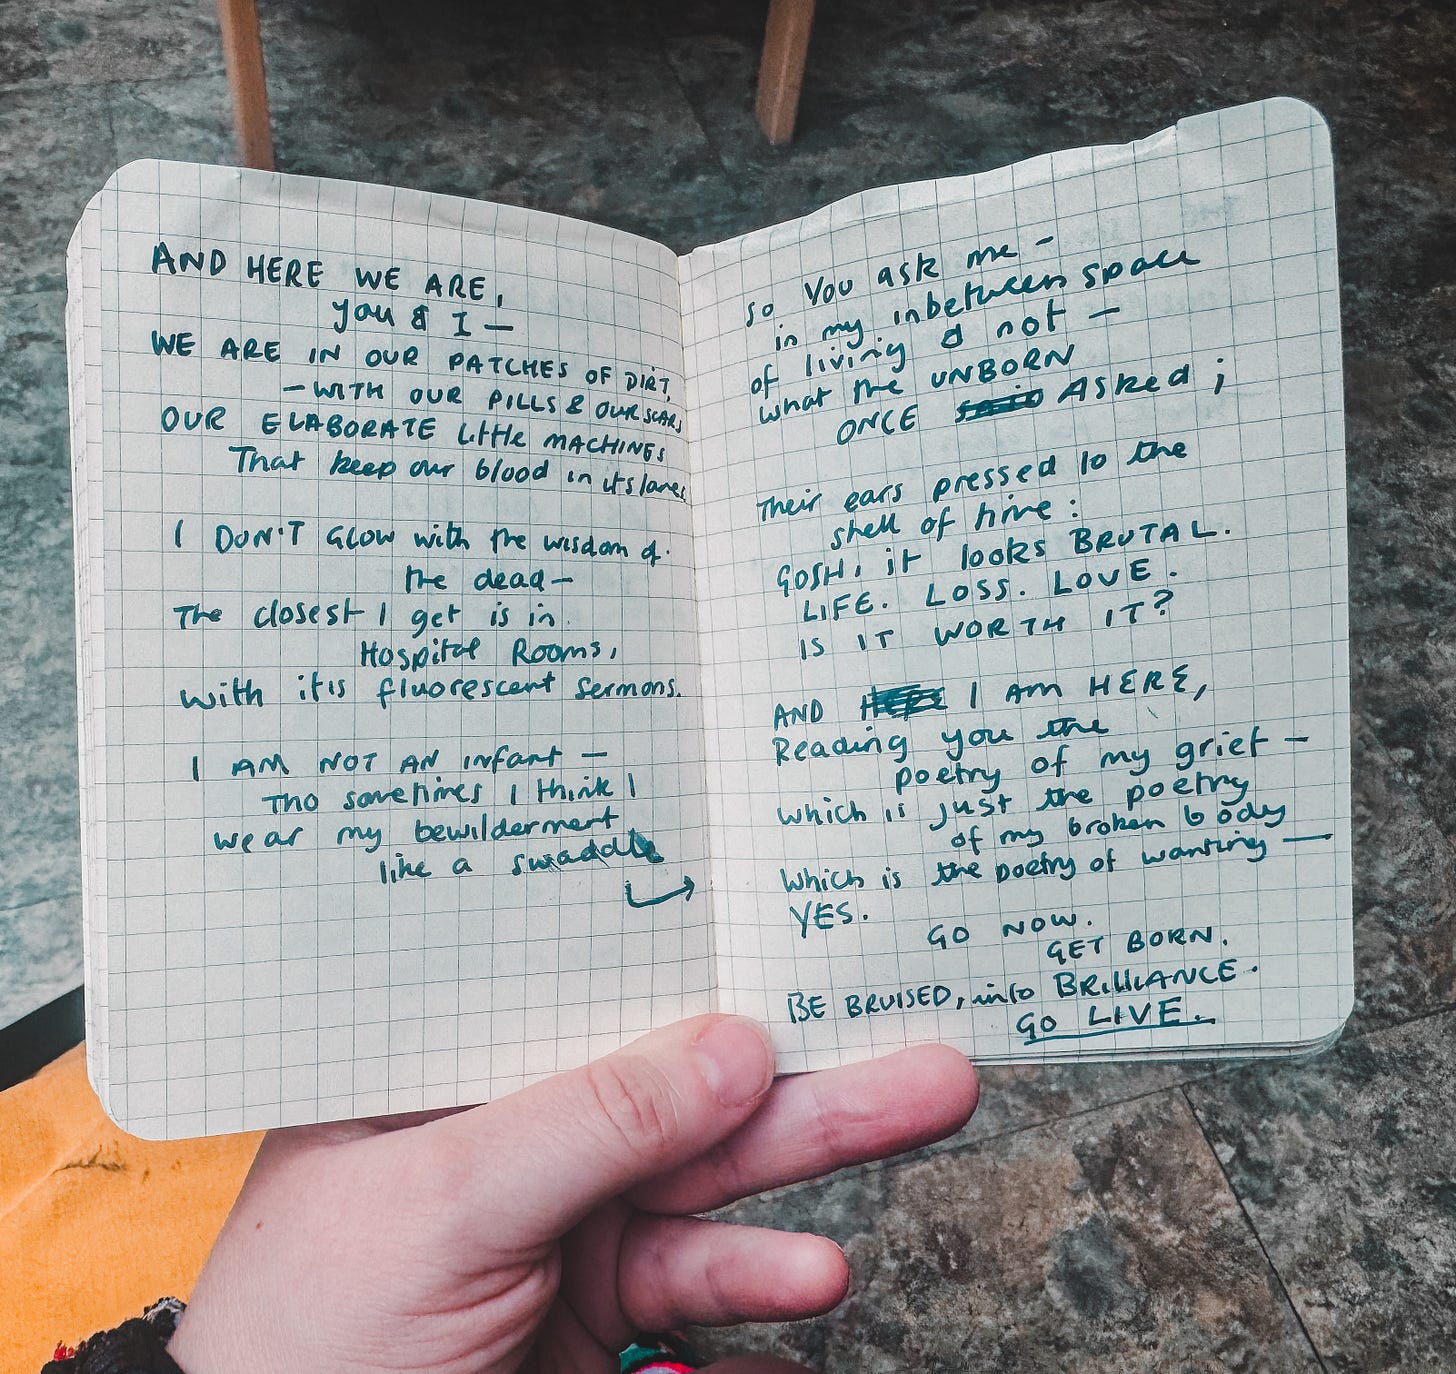 AND HERE WE ARE,
you & I —
WE ARE IN OUR PATCHES OF DIRT,
— WITH OUR PILLS & OUR SCARS
OUR ELABORATE little MACHINES
That keep our blood in its lanes
I DON'T GLOW with the wisdom of
the dead —
The closest I get is in
Hospital Rooms,
with it's fluorescent sermons.
I AM NOT AN infant —
Tho sometimes I think I
wear my bewilderment
like a swaddle
so You ask me -
in my inbetween space
of living & not —
what the UNBORN
ONCE said Asked ;
Their ears pressed to the
shell of time :
GOSH, it looks BRUTAL.
LIFE. LOSS. LOVE.
IS IT WORTH IT?
AND I AM HERE,
Reading you the
poetry of my grief —
which is just the poetry
of my broken body
which is the poetry of wanting —
YES.
GO NOW.
GET BORN.
BE BRUISED, into BRILLIANCE.
GO LIVE.